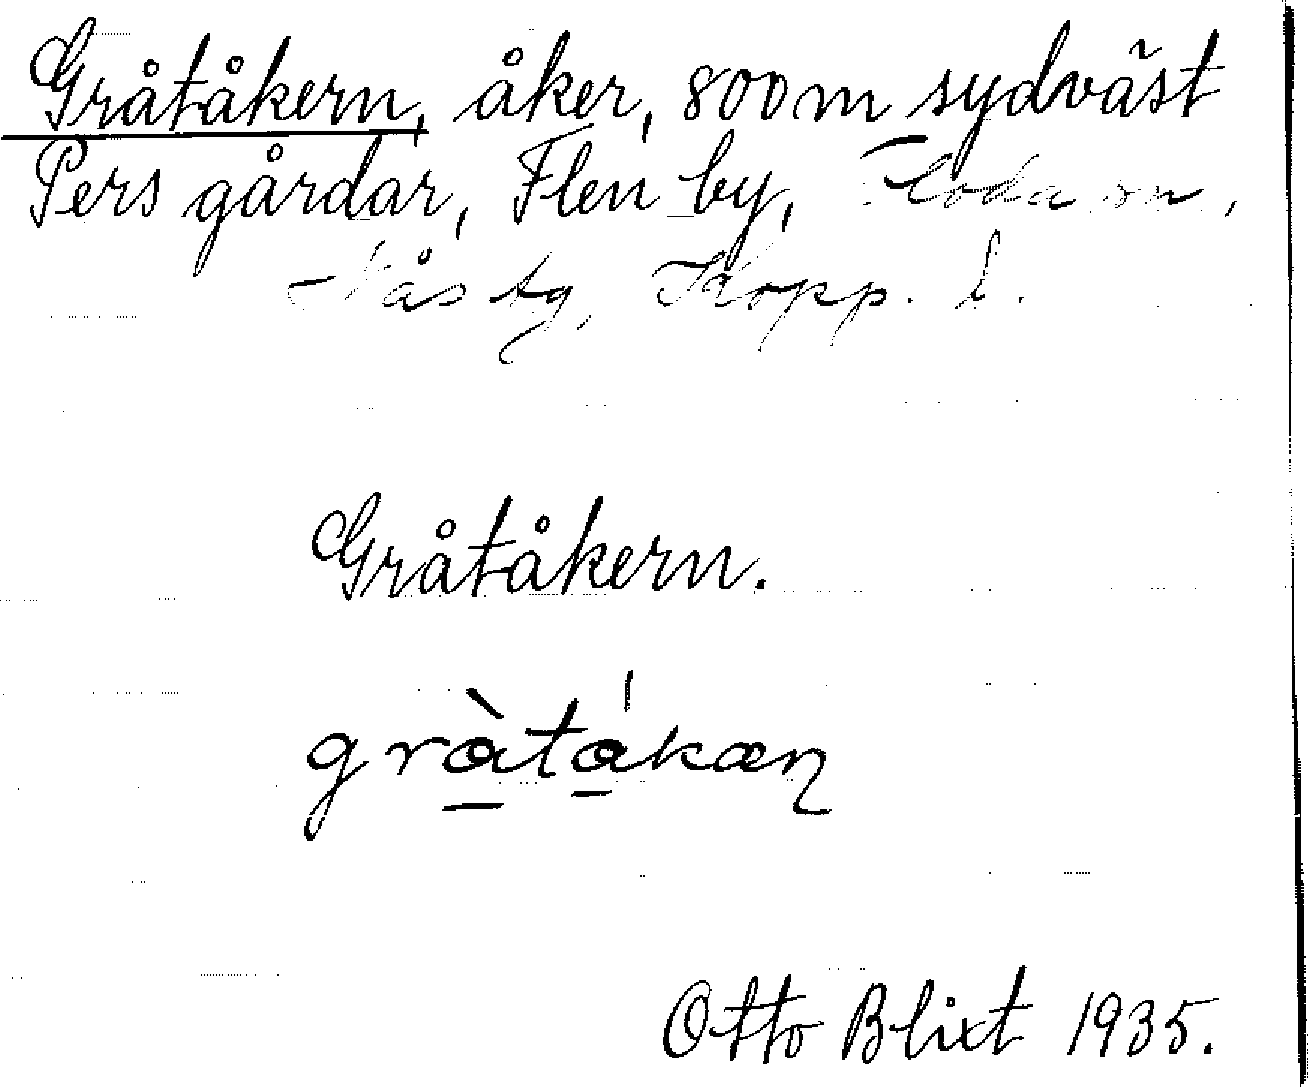 Gråtåkern, åker, 800 m sydväst
Pers gårdar, Flen by, Floda sn,
Nås tg, Kopp. l.
Gråtåkern.
gràtákæɳ
Otto Blixt 1935.